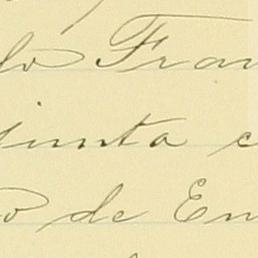 do Fran
junta c
o de En